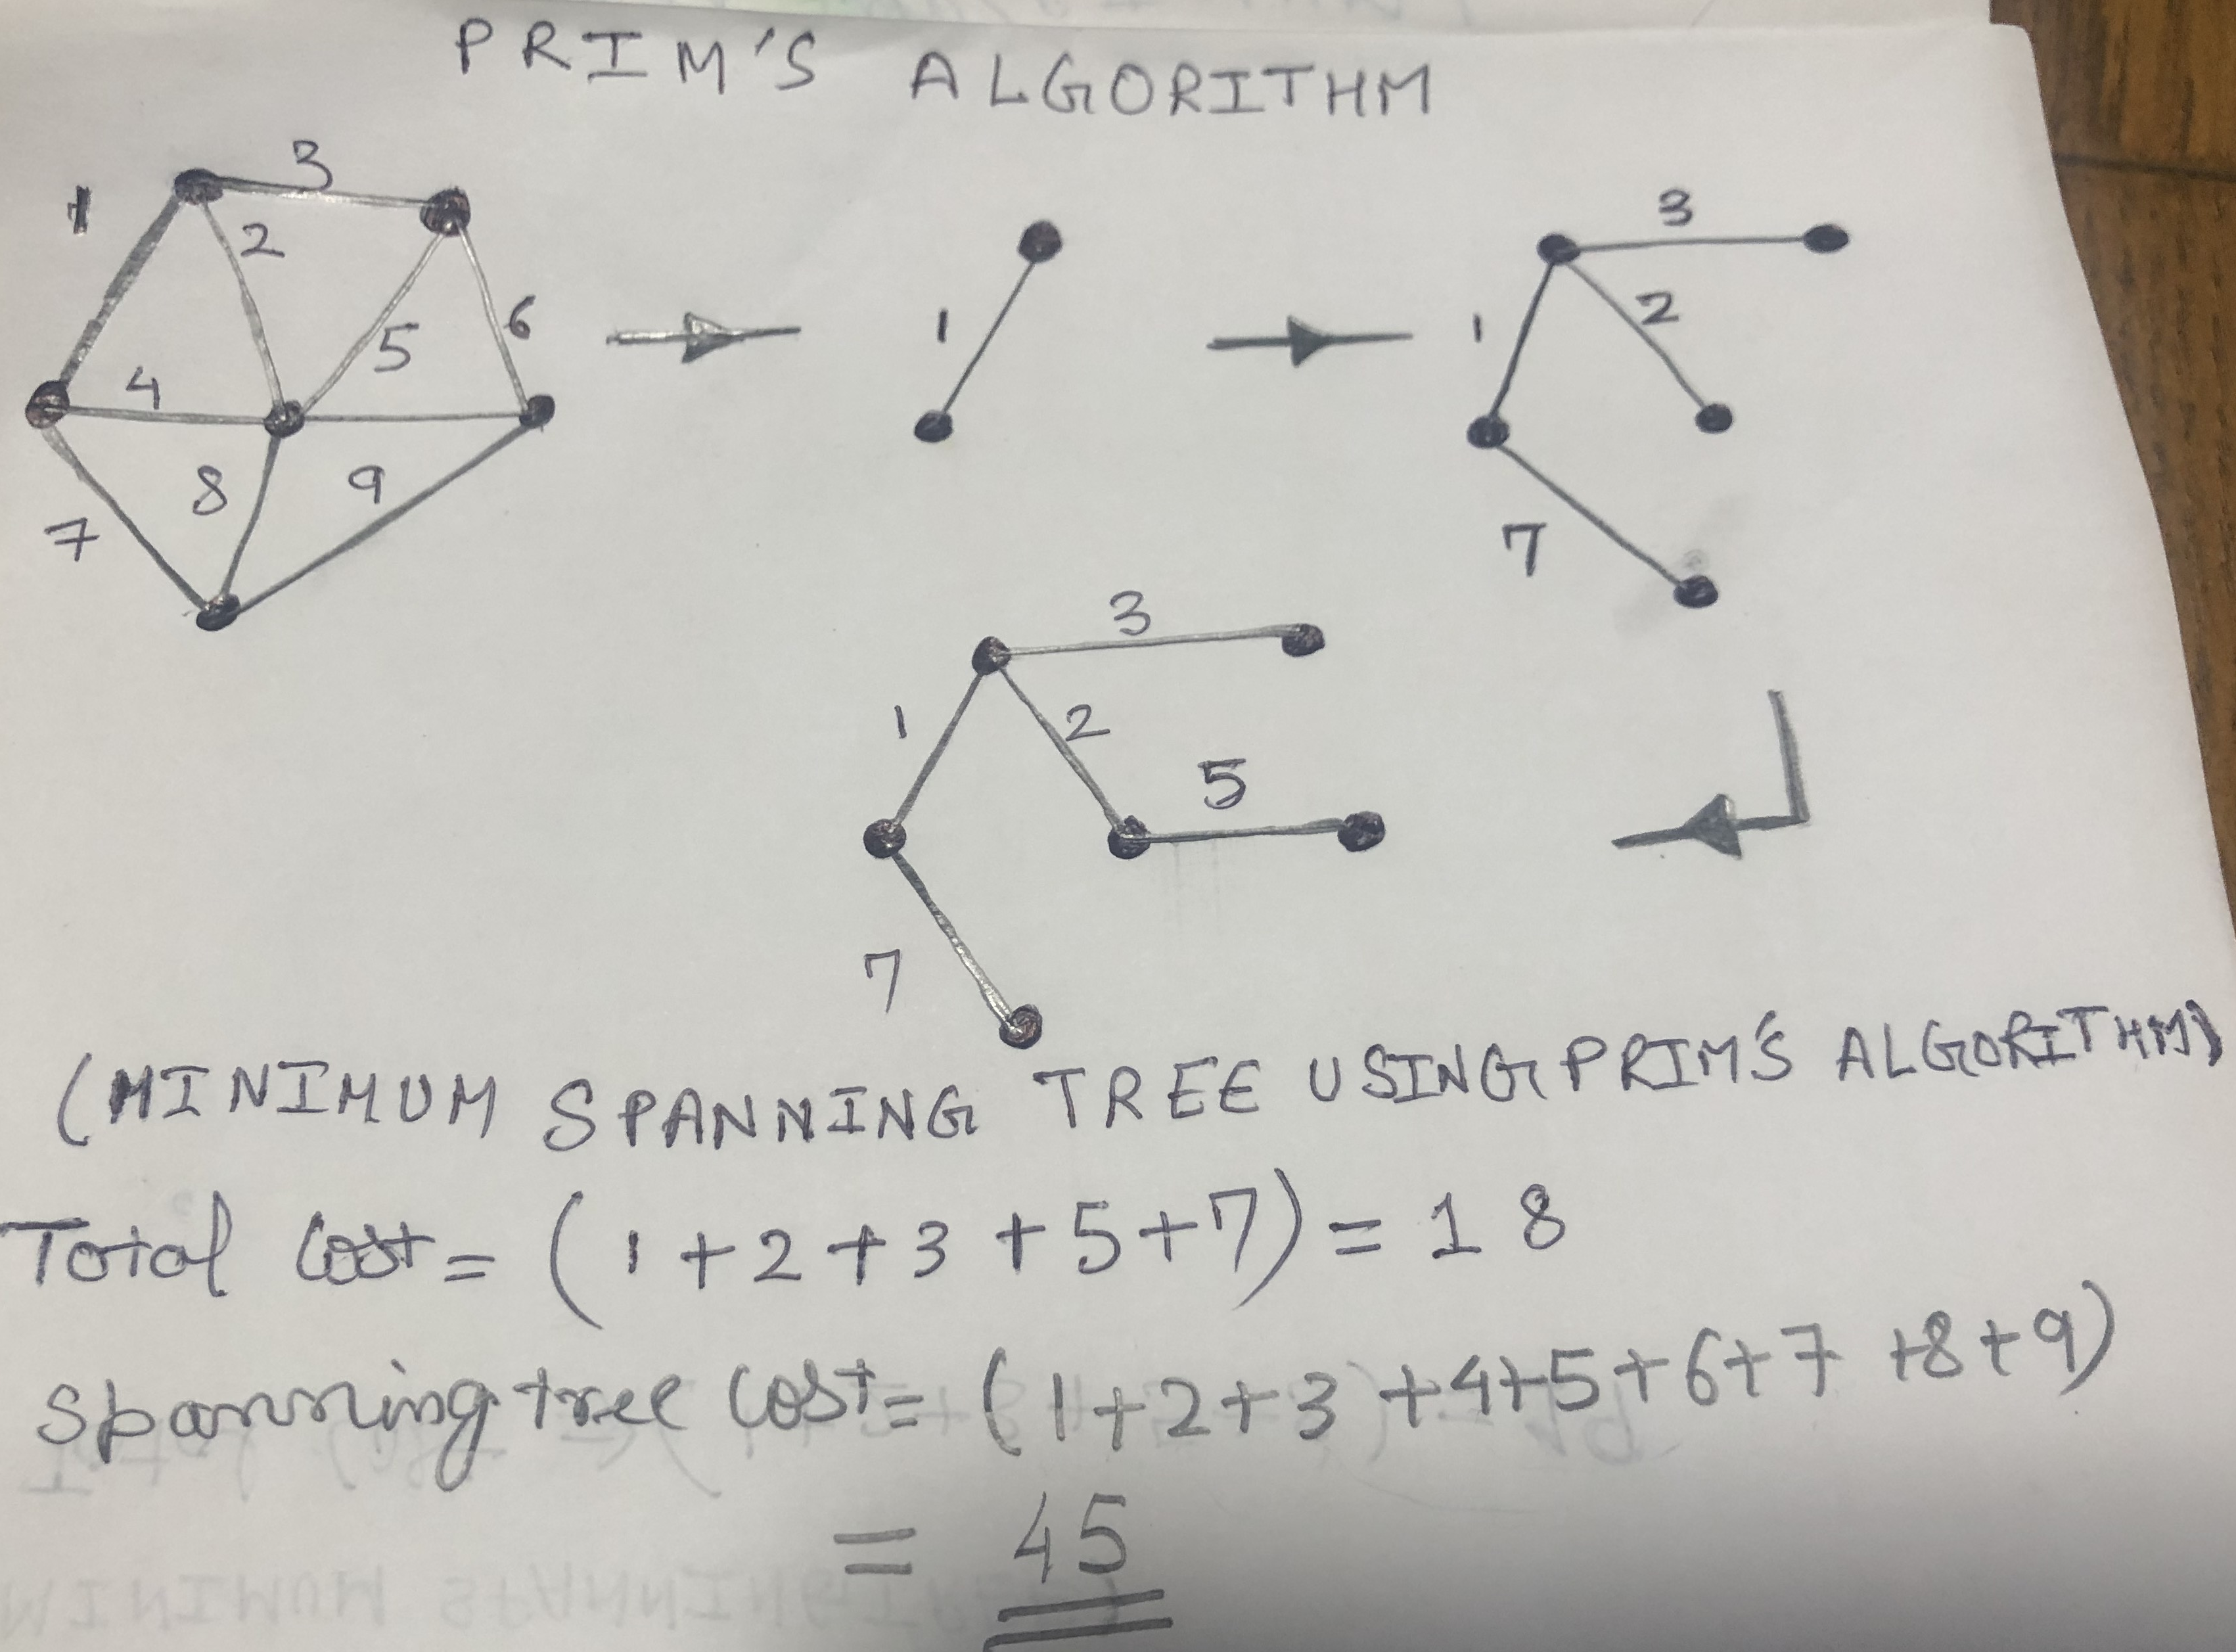 PRIM'S ALGORITHM
3
1
2
5
6
4
8
9
7
1
3
1
2
7
3
1
2
5
7
(MINIMUM SPANNING TREE USING PRIM'S ALGORITHM)
Total Cost = (1+2+3+5+7) = 18
Spanning tree Cost = (1+2+3+4+5+6+7+8+9)
= 45